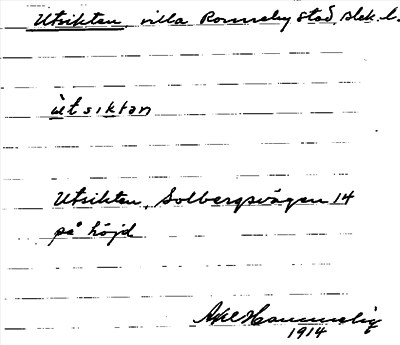 Utsikten, villa Ronneby stad, Blek. l.
ùtsiktan
Utsikten, Solbergsvägen 14
på höjd
Axel
1914